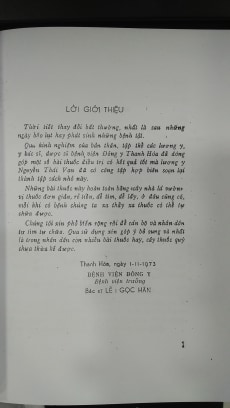 LỜI GIỚI THIỆU
Thời tiết thay đổi bất thường, nhất là sau những
ngày bão lụt hay phát sinh những bệnh tật.
Qua kinh nghiệm của bản thân, tập thể các lương y,
y bác sĩ, dược sĩ bệnh viện Đông y Thanh Hóa đã đóng
góp một số bài thuốc điều trị có kết quả tốt mà lương y
Nguyễn Thái Vau đã có công tập hợp biên soạn lại
thành tập sách nhỏ này.
Những bài thuốc này hoàn toàn bằng cây nhà lá vườn
vị thuốc đơn giản, rẻ tiền, dễ tìm, dễ lấy, ở đâu cũng có,
mỗi khi có bệnh chúng ta xa thầy xa thuốc có thể tự
chữa được.
Chúng tôi xin phổ biến rộng rãi để cán bộ và nhân dân
tự tìm tự chữa. Qua sử dụng xin góp ý bổ sung và nhất
là trong nhân dân còn nhiều bài thuốc hay, cây thuốc quý
thừa kế
Thanh Hóa, ngày 1-11-1973
BỆNH VIỆN ĐÔNG Y
Bệnh viện trưởng
Bác sĩ LÊ GỌC HÂN